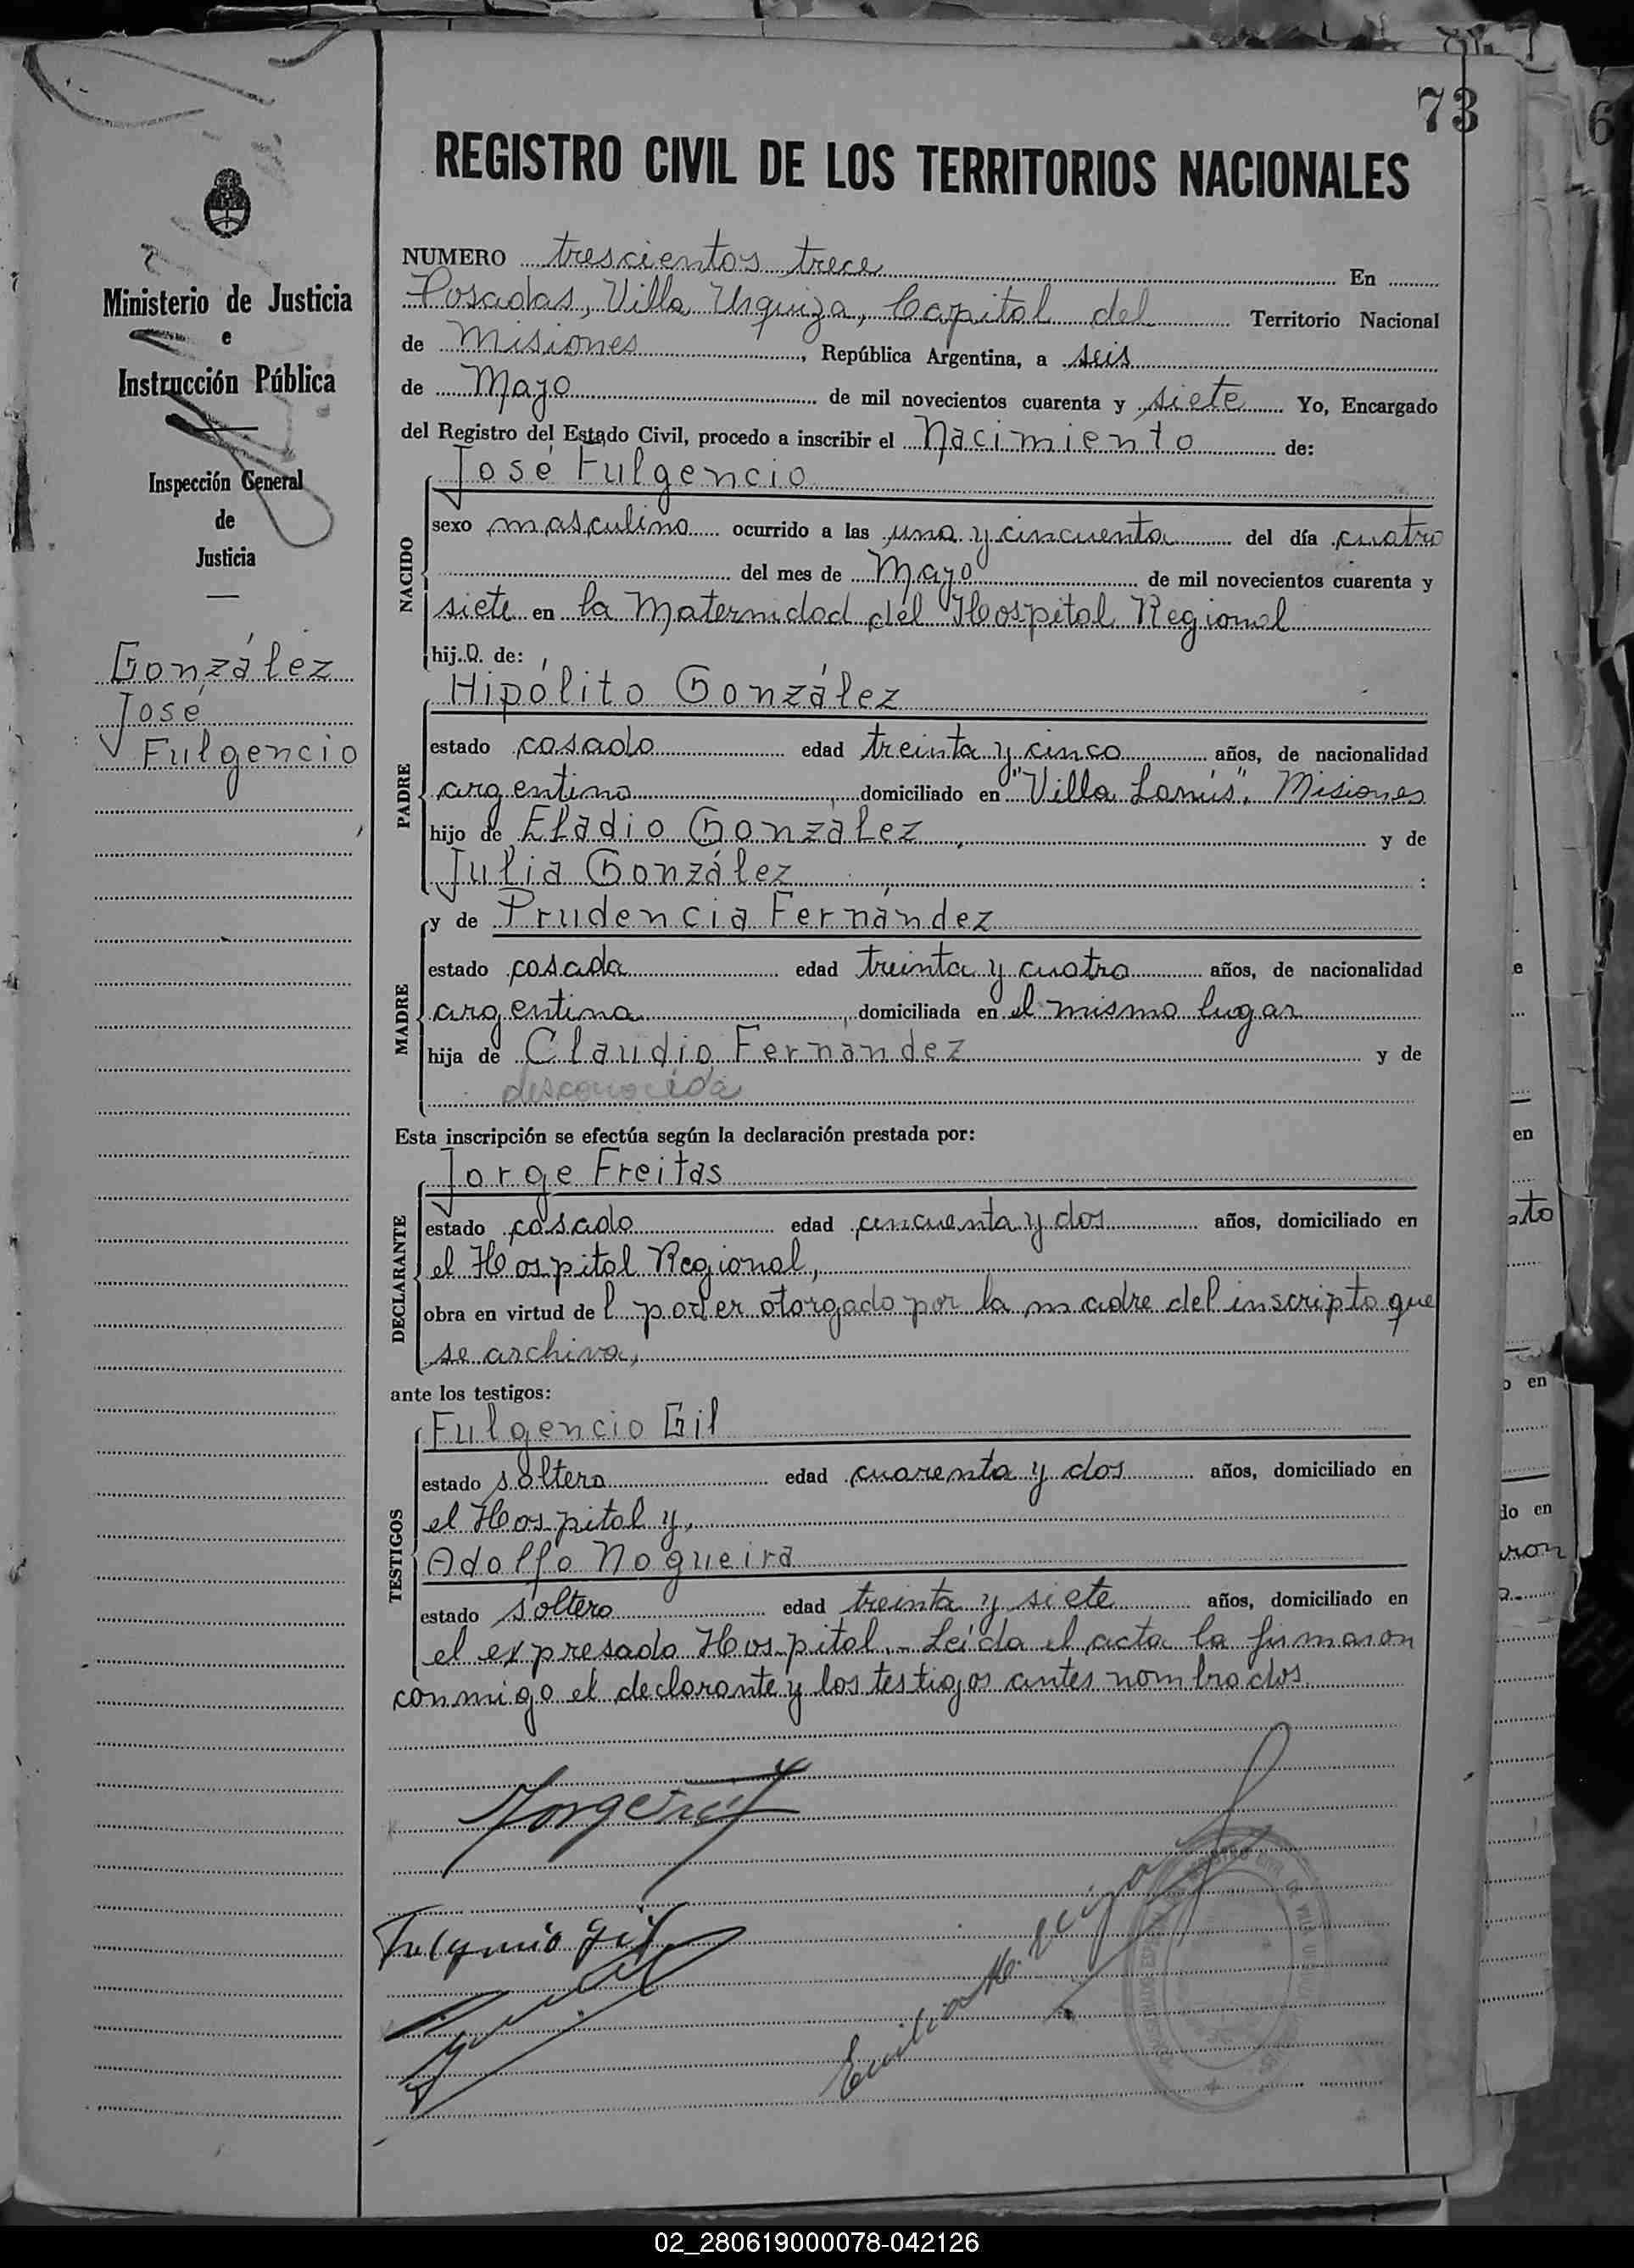 73
6
REGISTRO CIVIL DE LOS TERRITORIOS NACIONALES
Ministerio de Justicia
e
Instrucción Pública
Inspección General
de
Justicia
González
José
Fulgencio
NUMERO trescientos trece En
Posadas, Villa Urquiza, Capital del Territorio Nacional
de Misiones, República Argentina, a seis
de Mayo de mil novecientos cuarenta y siete Yo, Encargado
del Registro del Estado Civil, procedo a inscribir el Nacimiento de:
José Fulgencio
NACIDO
sexo masculino ocurrido a las una y cincuenta del día cuatro
del mes de Mayo de mil novecientos cuarenta y
siete en la Maternidad del Hospital Regional
hij o de:
Hipólito González
PADRE
estado casado edad treinta y cinco años, de nacionalidad
argentino, domiciliado en "Villa Lanús", Misiones
hijo de Eladio González, y de
Julia González :
y de Prudencia Fernández
MADRE
estado casada edad treinta y cuatro años, de nacionalidad
argentina, domiciliada en el mismo lugar
hija de Claudio Fernandez y de
desconocida
Esta inscripción se efectúa según la declaración prestada por:
Jorge Freitas
DECLARANTE
estado casado edad cincuenta y dos años, domiciliado en
el Hospital Regional,
obra en virtud de l poder otorgado por la madre del inscripto que
se archiva,
ante los testigos:
Fulgencio Gil
TESTIGOS
estado soltero edad cuarenta y dos años, domiciliado en
el Hospital y,
Adolfo Nogueira
estado soltero edad treinta y siete años, domiciliado en
el expresado Hospital.- Leída el acta la firmaron
conmigo el declarante y los testigos antes nombrados.
Fulgencio Gil
02_280619000078-042126